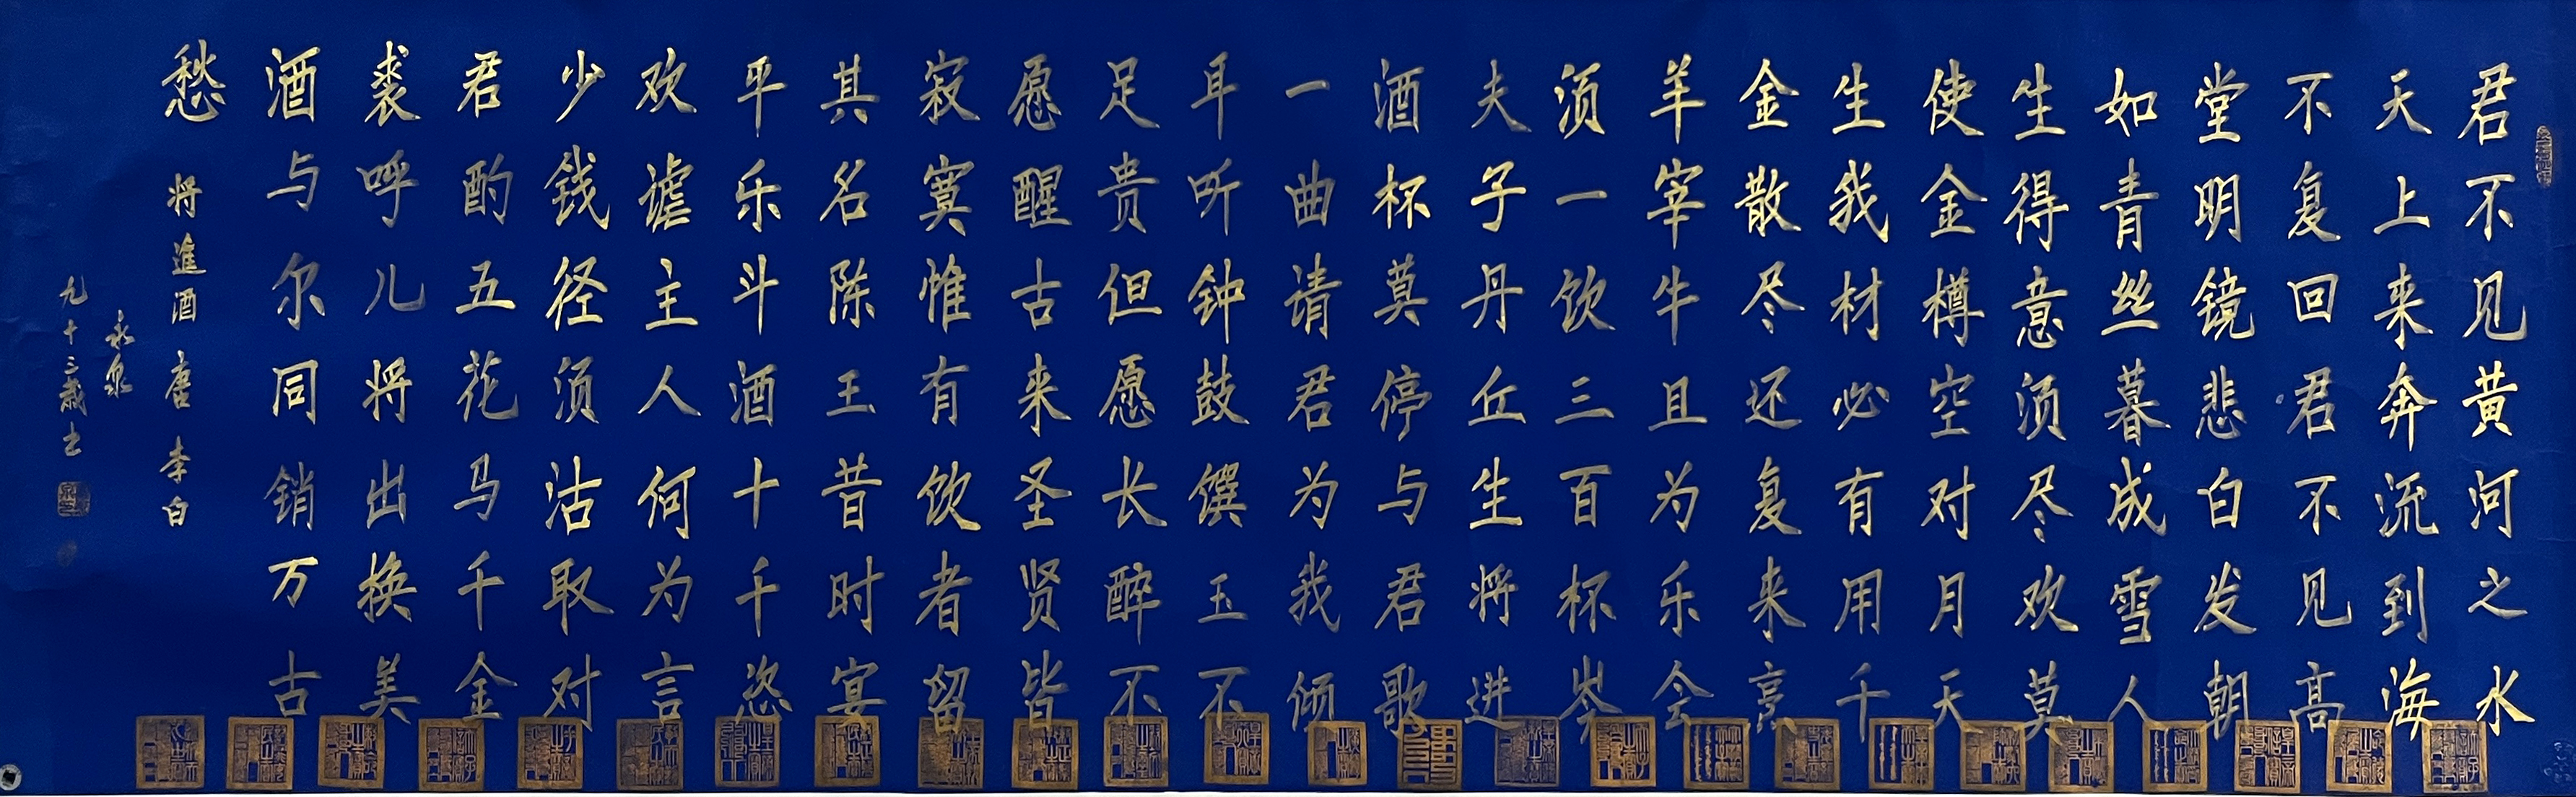 君不见黄河之水
天上来奔流到海
不复回君不见高
堂明镜悲白发朝
如青丝暮成雪人
生得意须尽欢莫
使金樽空对月天
生我材必有用千
金散尽还复来烹
羊宰牛且为乐会
须一饮三百杯岑
夫子丹丘生将进
酒杯莫停与君歌
一曲请君为我倾
耳听钟鼓馔玉不
足贵但愿长醉不
愿醒古来圣贤皆
寂寞惟有饮者留
其名陈王昔时宴
平乐斗酒十千恣
欢谑主人何为言
少钱径须沽取对
君酌五花马千金
裘呼儿将出换美
酒与尔同销万古
愁 将進酒 唐 李白
永泉
九十三歲书